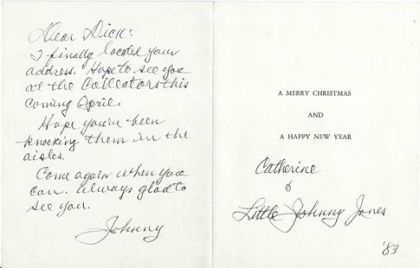 Dear Dick:
I finally located your
address. Hope to see you
at the Collectors this
coming April.
Hope you've been
knocking them in the
aisles.
Come again when you
can. Always glad to
see you.
Johnny
A MERRY CHRISTMAS
AND
A HAPPY NEW YEAR
Catherine
&
Little Johnny Jones
'83